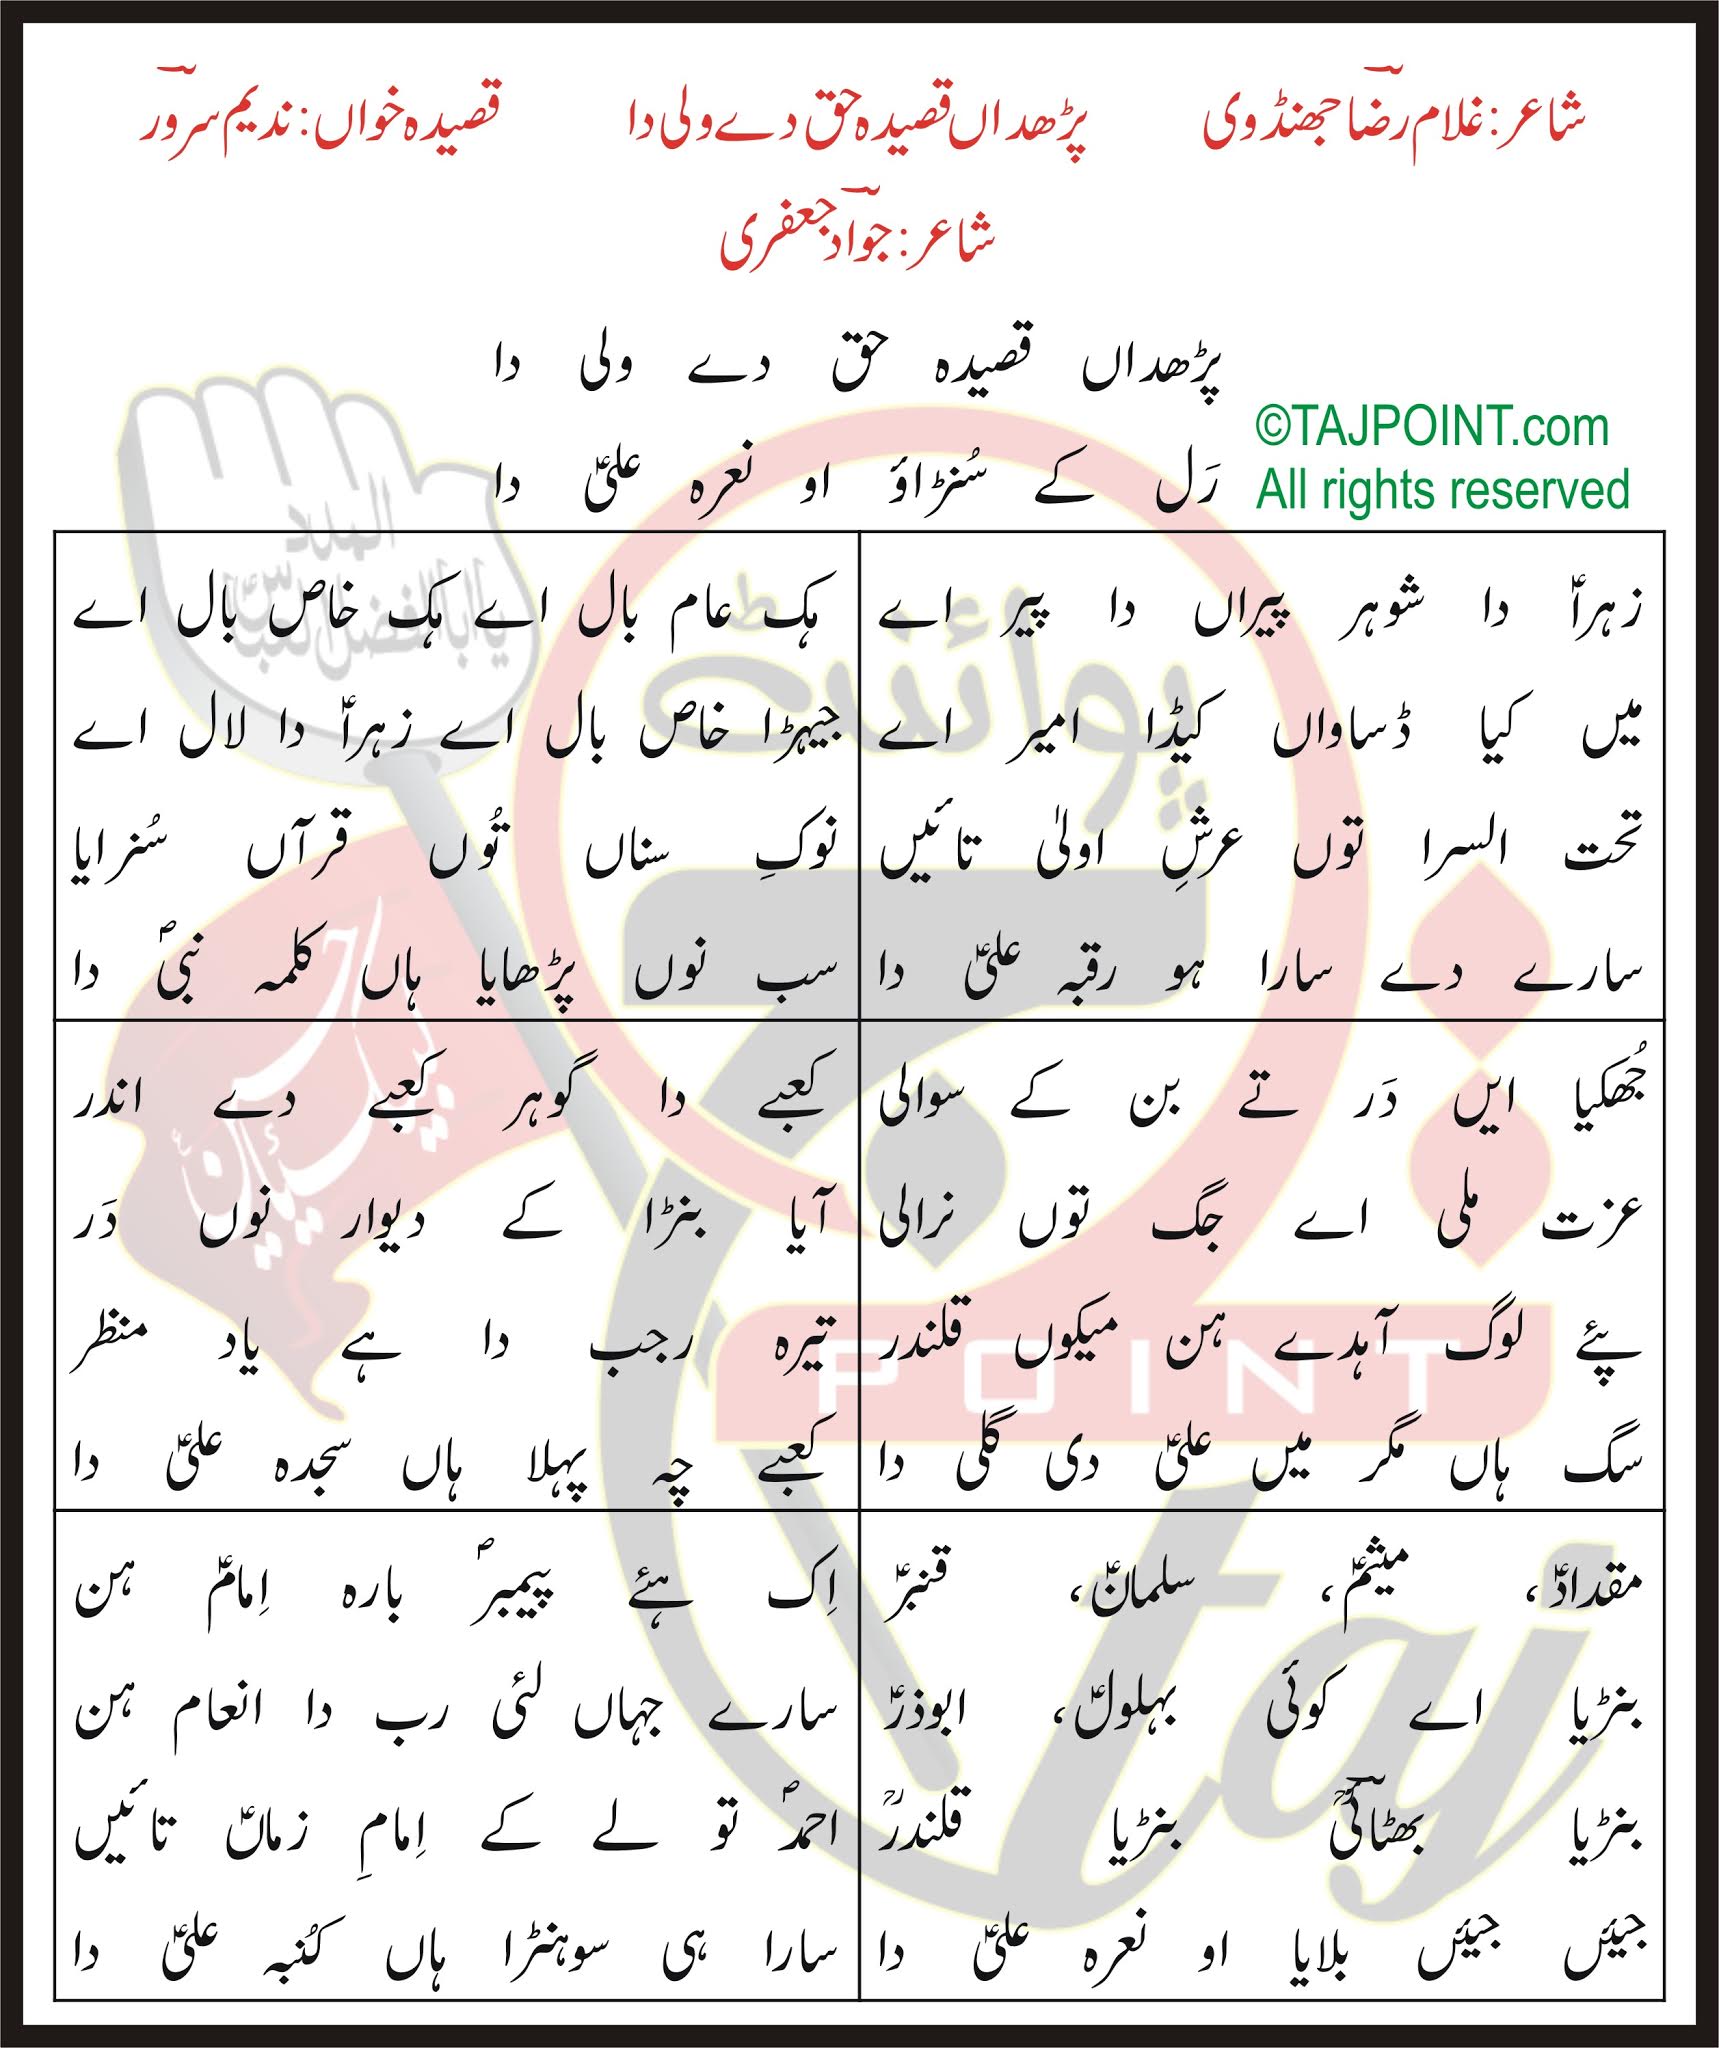 شاعر: غلام رضاؔ جھنڈوی پڑھداں قصیدہ حق دے ولی دا قصیدہ خواں: ندیم سرورؔ
شاعر: جوادؔ جعفری
پڑھداں قصیدہ حق دے ولی دا
رَل کے سُنڑاؤ او نعرہ علیؑ دا
©TAJPOINT.com
All rights reserved
زہراؑ دا شوہر پیراں دا پیر اے
میں کیا ڈساواں کیڈا امیر اے
تحت السرا توں عرشِ اولیٰ تائیں
سارے دے سارا ہو رقبہ علیؑ دا
ہک عام بال اے ہک خاص بال اے
جیہڑا خاص بال اے زہراؑ دا لال اے
نوکِ سناں تُوں قرآں سُنڑایا
سب نوں پڑھایا ہاں کلمہ نبیؐ دا
جُھکیا ایں دَر تے بن کے سوالی
عزت ملی اے جگ توں نرالی
پئے لوگ آہدے ہن میکوں قلندر
سگ ہاں مگر میں علیؑ دی گلی دا
کعبے دا گوہر کعبے دے اندر
آیا بنڑا کے دیوار نوں دَر
تیرہ رجب دا ہے یاد منظر
کعبے چہ پہلا ہاں سجدہ علیؑ دا
مقدادؑ، میثمؑ، سلمانؑ، قنبرؑ
بنڑیا اے کوئی بہلولؑ، ابوذرؑ
بنڑیا بھٹائیؒ بنڑیا قلندرؒ
جیئں جیئں بلایا او نعرہ علیؑ دا
اِک ہئے پیمبرؐ بارہ اِمامؑ ہن
سارے جہاں لئی رب دا انعام ہن
احمدؐ تو لے کے اِمامِ زماںؑ تائیں
سارا ہی سوہنڑا ہاں کُنبہ علیؑ دا
پوائنٹ
POINT
taj